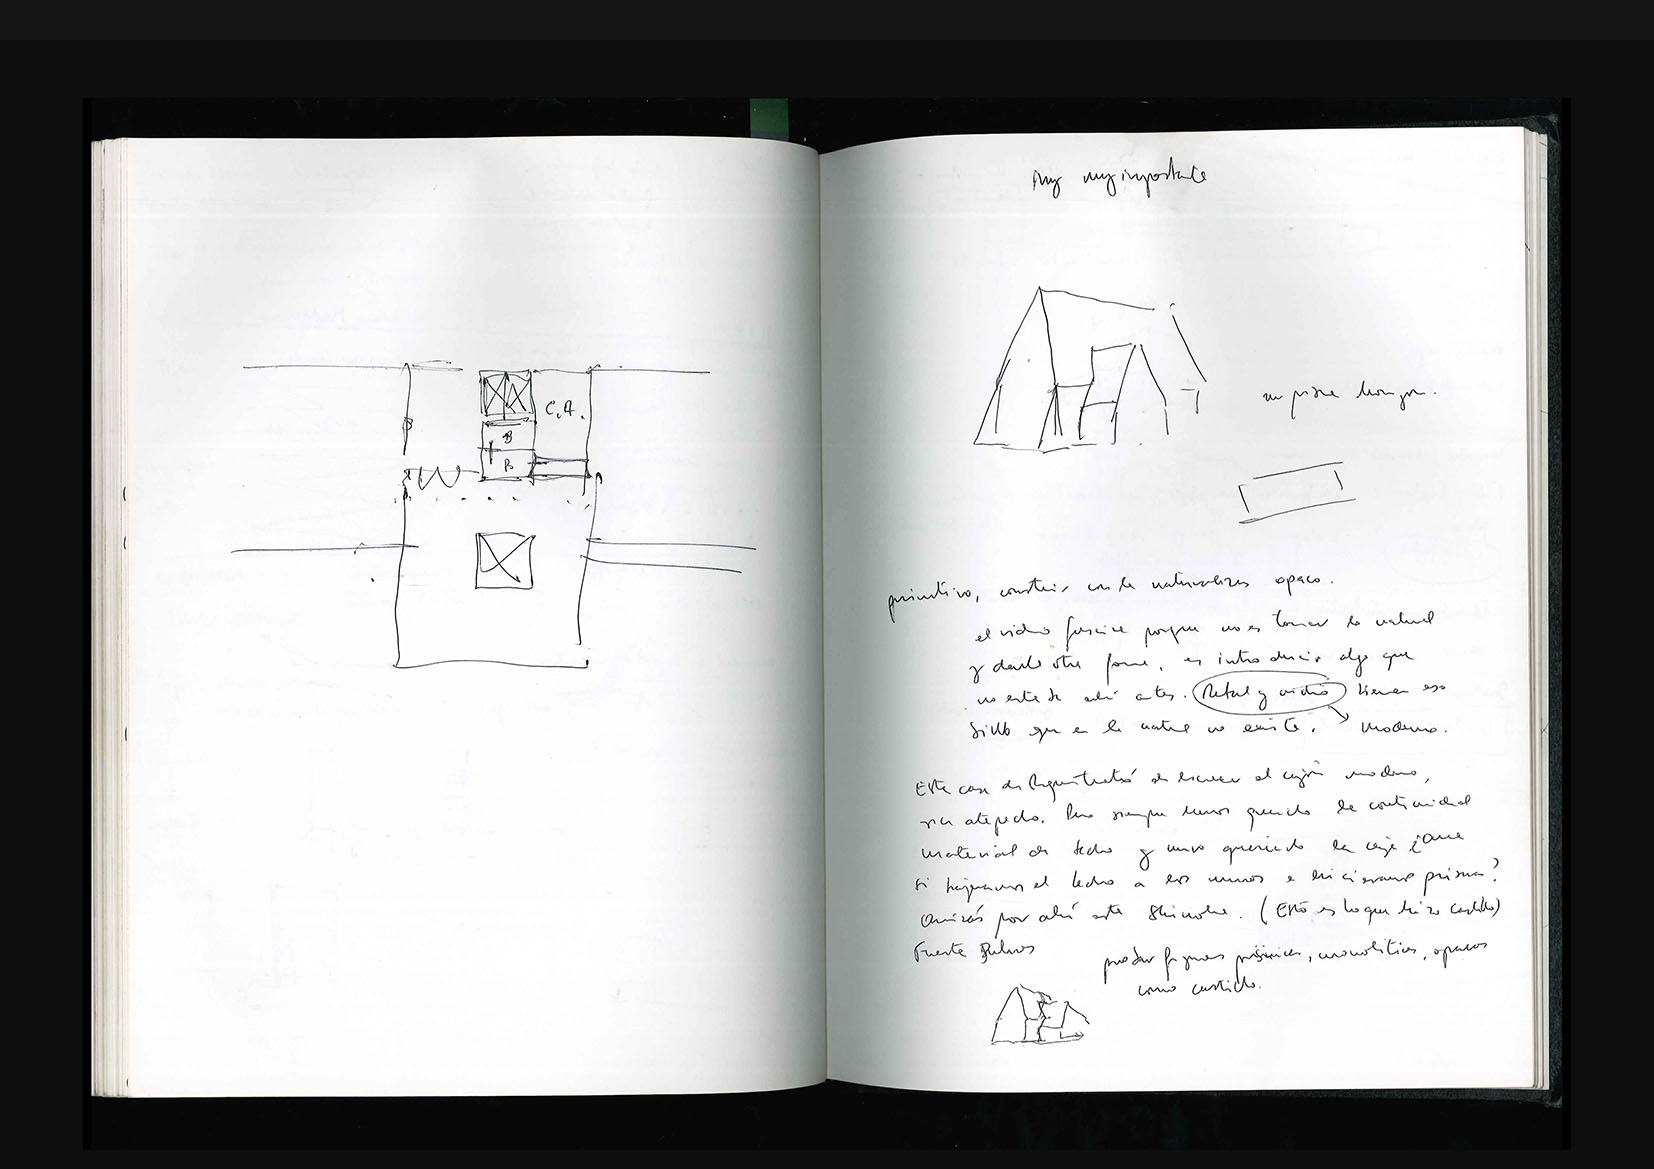 C.A.
B
B
muy muy importante
un prisma
primitivo, construir con la naturaleza opaco.
el vidrio porque no es tomar lo natural
y darle otra forma, es introducir algo que
no estaba ahí antes. Metal y vidrio tienen ese
brillo que en lo natural no existe. moderno.
Esta casa de trató de el cajón moderno,
Pero siempre hemos querido la continuidad
material de techo y muro queriendo la caja ¿Que
si bajáramos el techo a los muros e hiciéramos prisma?
Quizás por ahí este Shinohara. (Esto es lo que hizo castillo)
Fuerte Bulnes
figuras prismáticas, monolíticas, opacas
como castillo.